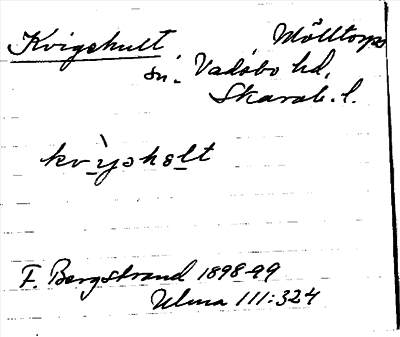 Kvigshult Mölltorps
sn. Vadsbo hd,
Skarab. l.
kvìyshɵlt
F. Bergstrand 1898-99
Ulma 111:324